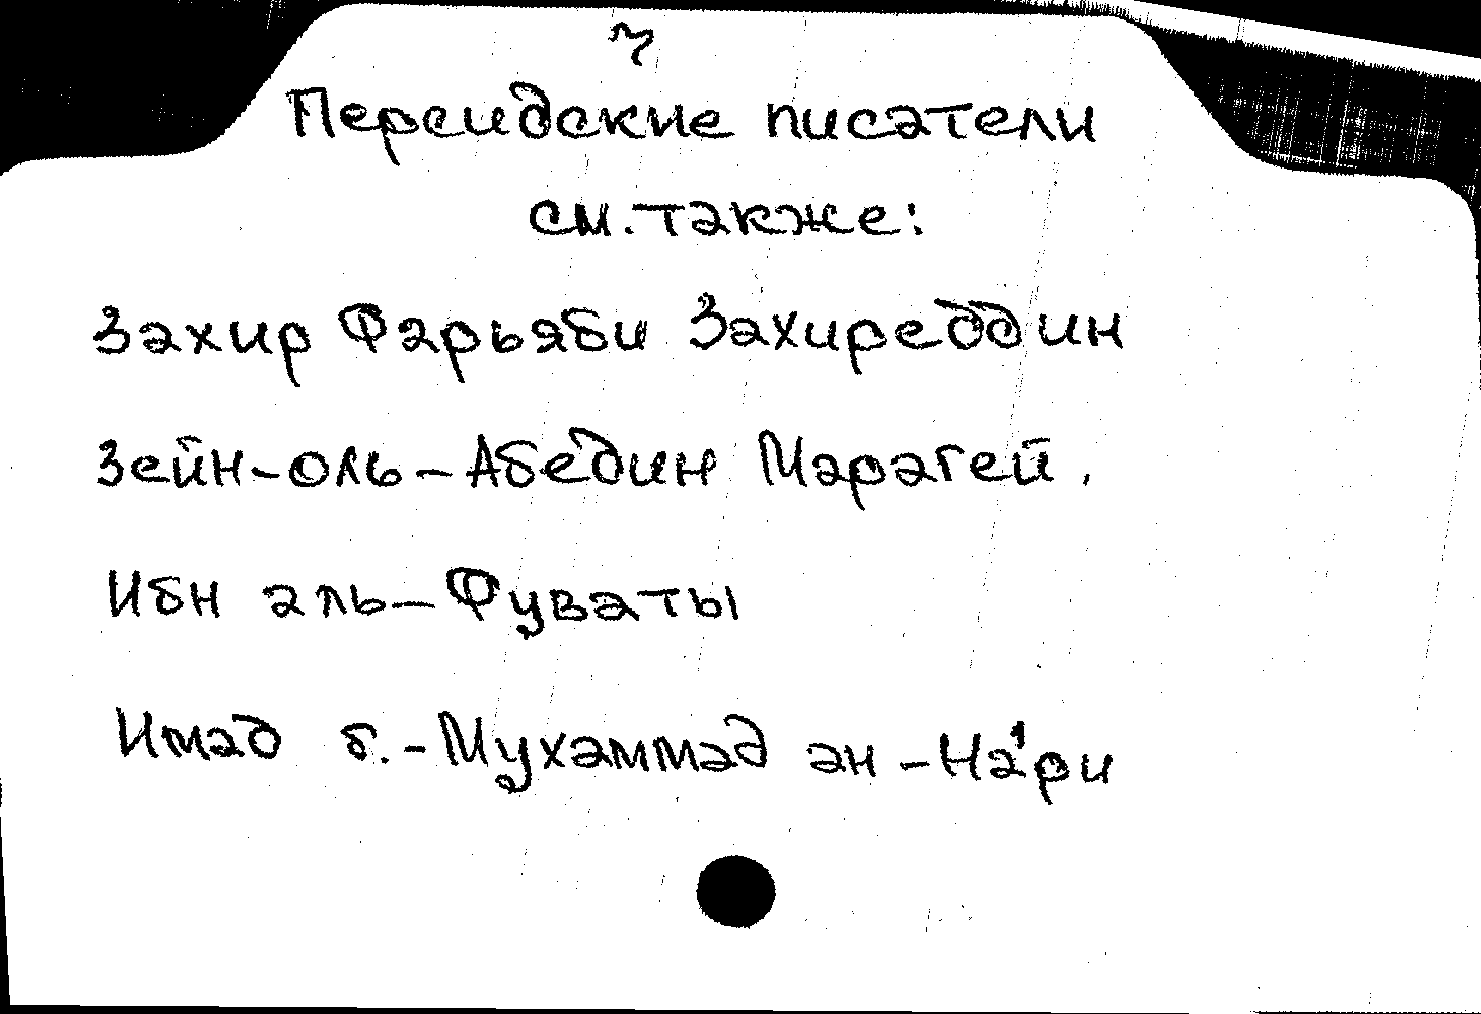 Персидские писатели
см. также:
Захир Фарьяби Захиреддин
Зейн-оль-Абедин Марагей.
Ибн аль-Фуваты
Имад б.-Мухаммад ан-На'ри